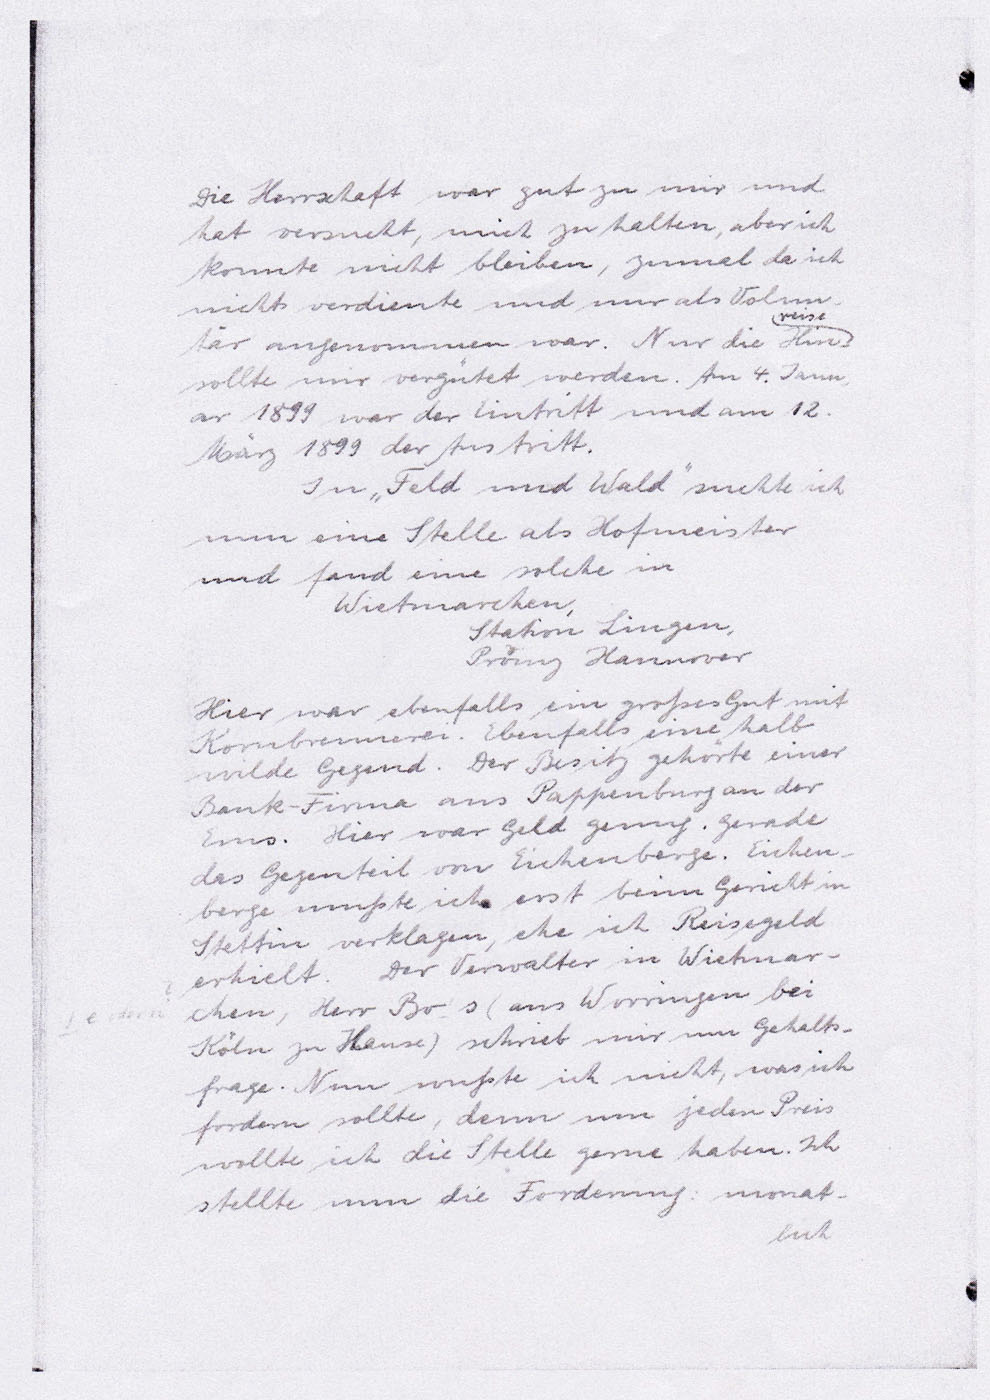 Die Herrschaft war gut zu mir und
hat versucht, mich zu halten, aber ich
konnte nicht bleiben, zumal da ich
nichts verdiente und nur als Volun-
reise
tär angenommen war. Nur die Hin-
sollte mir vergütet werden. Am 4. Janu-
ar 1899 war der Eintritt und am 12.
März 1899 der Austritt.
In „Feld und Wald" suchte ich
nun eine Stelle als Hofmeister
und fand eine solche in
Wietmarchen,
Station Lingen,
Prov̈inz Hannover
Hier war ebenfalls ein großes Gut mit
Kornbrennerei. Ebenfalls eine halb
wilde Gegend. Der Besitz gehörte einer
Bank-Firma aus Pappenburg an der
Ems. Hier war Geld genug. Gerade
das Gegenteil von Eichenberge. Eichen-
berge mußte ich erst beim Gericht in
Stettin verklagen, ehe ich Reisegeld
erhielt. Der Verwalter in Wietmar-
chen, Herr (aus Worringen bei
Köln zu Hause) schrieb mir um Gehalts-
frage. Nun wußte ich nicht, was ich
fordern sollte, denn um jeden Preis
wollte ich die Stelle gerne haben. Ich
stellte nun die Forderung: monat-
lich